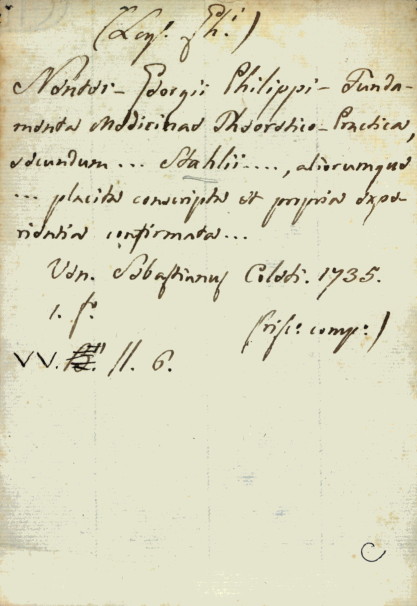 (Leg. Ph.)
Nenter - Georgii Philippi - Funda-
menta Medicinae Theoretico-Practica,
secundum ... Stahlii ...., aliorumque
... placita conscripta et propria expe-
rientia confirmata ...
Ven. Sebastianus Coleti. 1735.
1. fo.
comp.)
VV. II. 6.
C